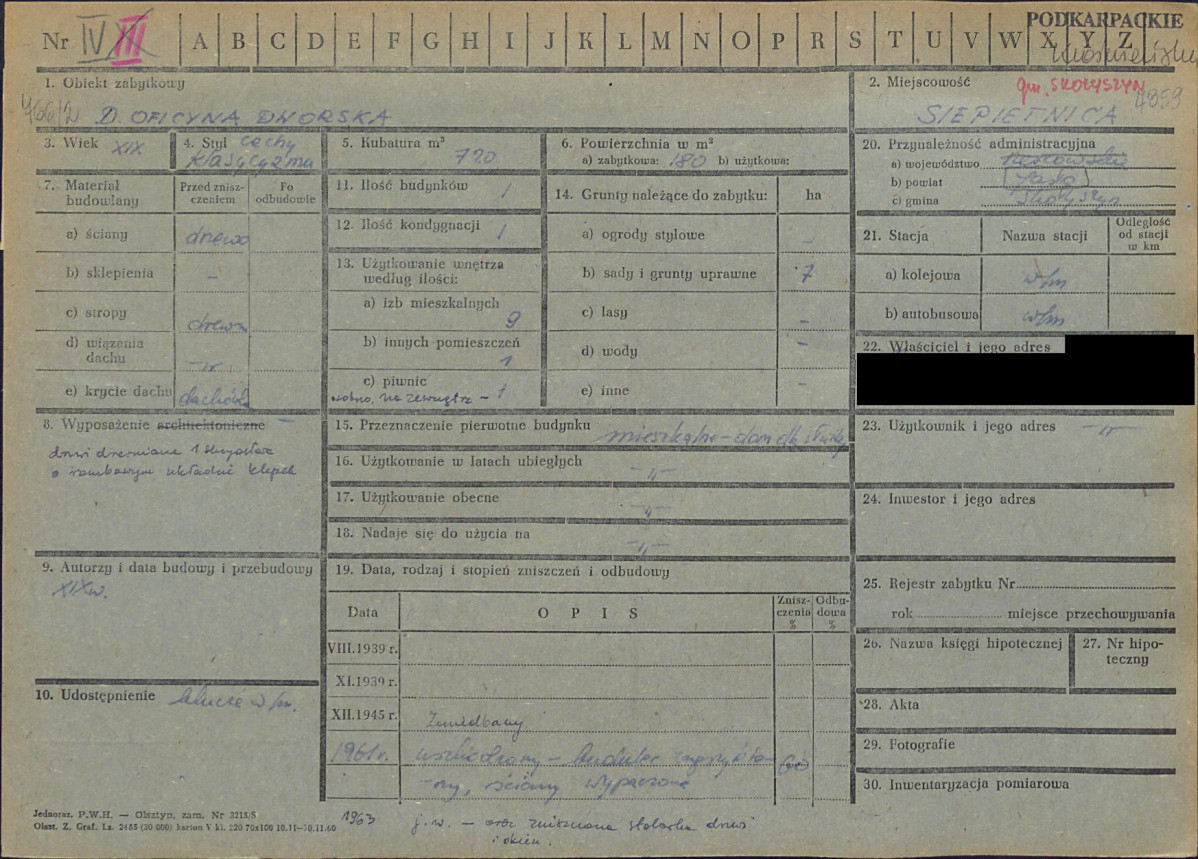 PODKARPACKIE
Nr IV XIII A B C D E F G H I J K L M N O P R S T U V W X Y Z
1. Obiekt zabytkowy
D. OFICYNA DWORSKA
2. Miejscowość
gm. SKOŁYSZYN
4859
SIEPIETNICA
3. Wiek XIX
4. Styl cechy klasycyzmu
5. Kubatura m³ 720
6. Powierzchnia w m²
a) zabytkowa: 180 b) użytkowa:
20. Przynależność administracyjna
a) województwo rzeszowskie
b) powiat Jasło
c) gmina Skołyszyn
7. Materiał budowlany
Przed zniszczeniem
Po odbudowie
a) ściany drewno
b) sklepienia -
c) stropy drewn
d) wiązania dachu -"-
e) krycie dachu dachówka
11. Ilość budynków 1
12. Ilość kondygnacji 1
13. Użytkowanie wnętrza według ilości:
a) izb mieszkalnych 9
b) innych pomieszczeń 1
c) piwnic
osobno, na zewnątrz - 1
14. Grunty należące do zabytku: ha
a) ogrody stylowe -
b) sady i grunty uprawne 7
c) lasy -
d) wody -
e) inne -
21. Stacja
Nazwa stacji
Odległość od stacji w km
a) kolejowa w/m
b) autobusowa w/m
22. Właściciel i jego adres
8. Wyposażenie architektoniczne -
drzwi drewniane 1 skrzydłowe
o rombowym układzie klepek
15. Przeznaczenie pierwotne budynku mieszkalne - dom dla służby
16. Użytkowanie w latach ubiegłych -"-
17. Użytkowanie obecne -"-
18. Nadaje się do użycia na -"-
23. Użytkownik i jego adres -"-
24. Inwestor i jego adres
9. Autorzy i data budowy i przebudowy
XIX w.
19. Data, rodzaj i stopień zniszczeń i odbudowy
Data
O P I S
Zniszczenia %
Odbudowa %
VIII.1939 r.
XI.1939 r.
XII.1945 r. Zaniedbany
1961 r. uszkodzony - budulec
60
, ściany wypaczone
1963 j.w. - oraz zniszczona stolarka drzwi
i okien.
10. Udostępnienie klucze w/m.
25. Rejestr zabytku Nr
rok miejsce przechowywania
26. Nazwa księgi hipotecznej
27. Nr hipoteczny
28. Akta
29. Fotografie
30. Inwentaryzacja pomiarowa
Jednoraz. P.W.H. — Olsztyn, zam. Nr 3215/S
Olszt. Z. Graf. Lz. 2485 (30 000) karton V kl. 220 70x100 10.11-30.11.60